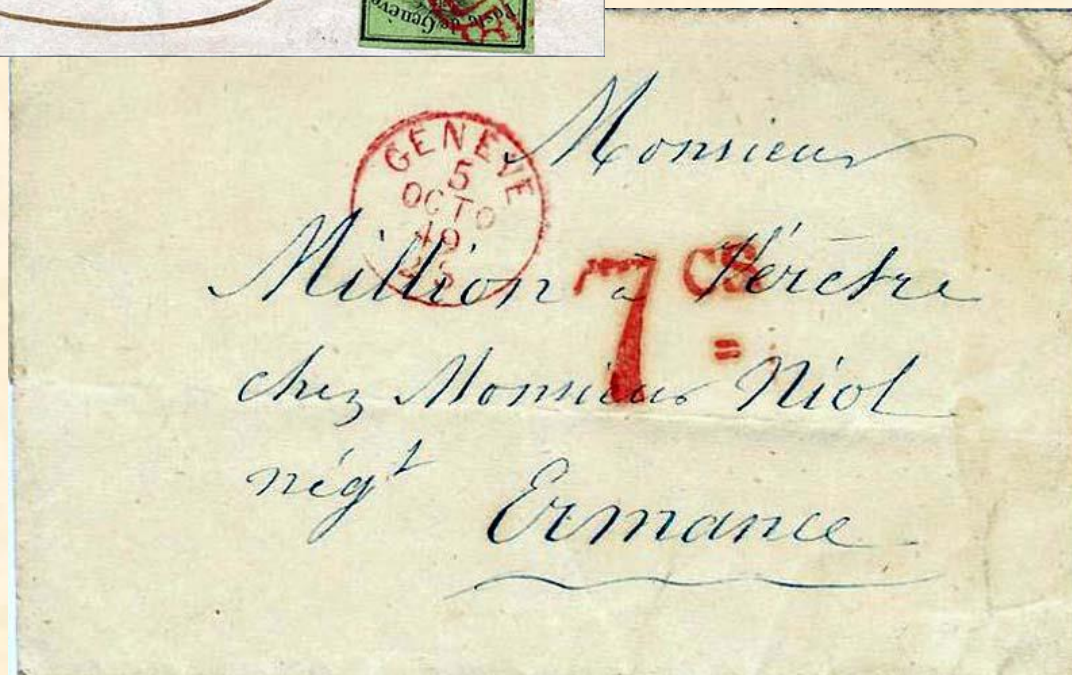 Poste de Genève
GENEVE
5
OCTO
49
Monsieur
Million à Véretre
7 CS
chez Monsieur Niol
négt
Ermance